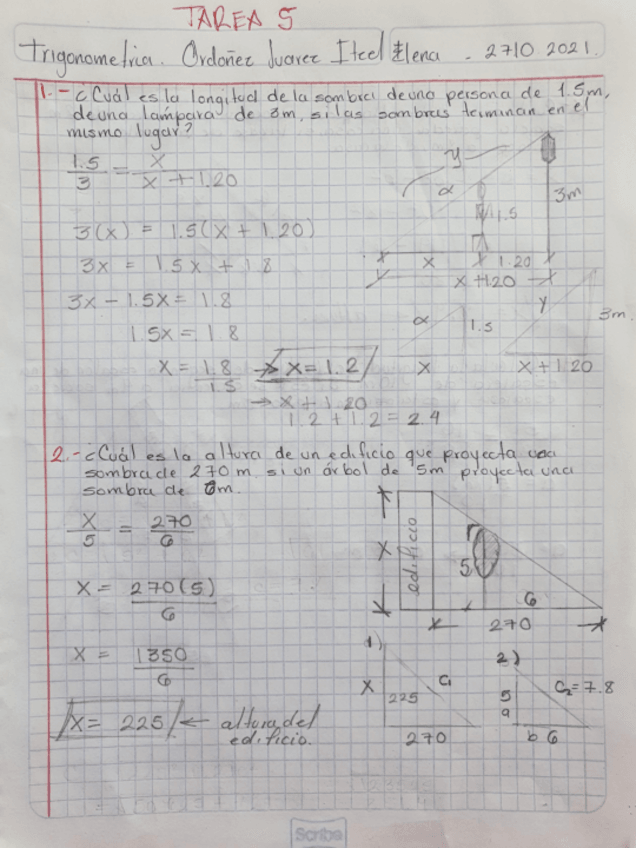 TAREA 5
Trigonometria. Ordoñez Juarez Itcel Elena - 2710 2021.
1.- ¿Cuál es la longitud de la sombra de una persona de 1.5m,
de una lampara de 3m, si las sombras terminan en el
mismo lugar?
1.5/3 = x/x+1.20
y
α
3m
1.5
3(x) = 1.5(x+1.20)
x 1.20
3x = 1.5x + 1.8
x+1.20
3x - 1.5x = 1.8
α 1.5 y 3m.
1.5x = 1.8
x = 1.8/1.5 → x = 1.2
x x+1.20
→ x+1.20
1.2+1.2 = 2.4
2.- ¿Cuál es la altura de un edificio que proyecta una
sombra de 270m si un árbol de 5m proyecta una
sombra de 6m.
x/5 = 270/6
x edificio 5 6
x = 270(5)/6
270
x = 1350/6
1) 2)
x 225 C1 5 a C2=7.8
x = 225 ← altura del
edificio.
270 b 6
Scribe